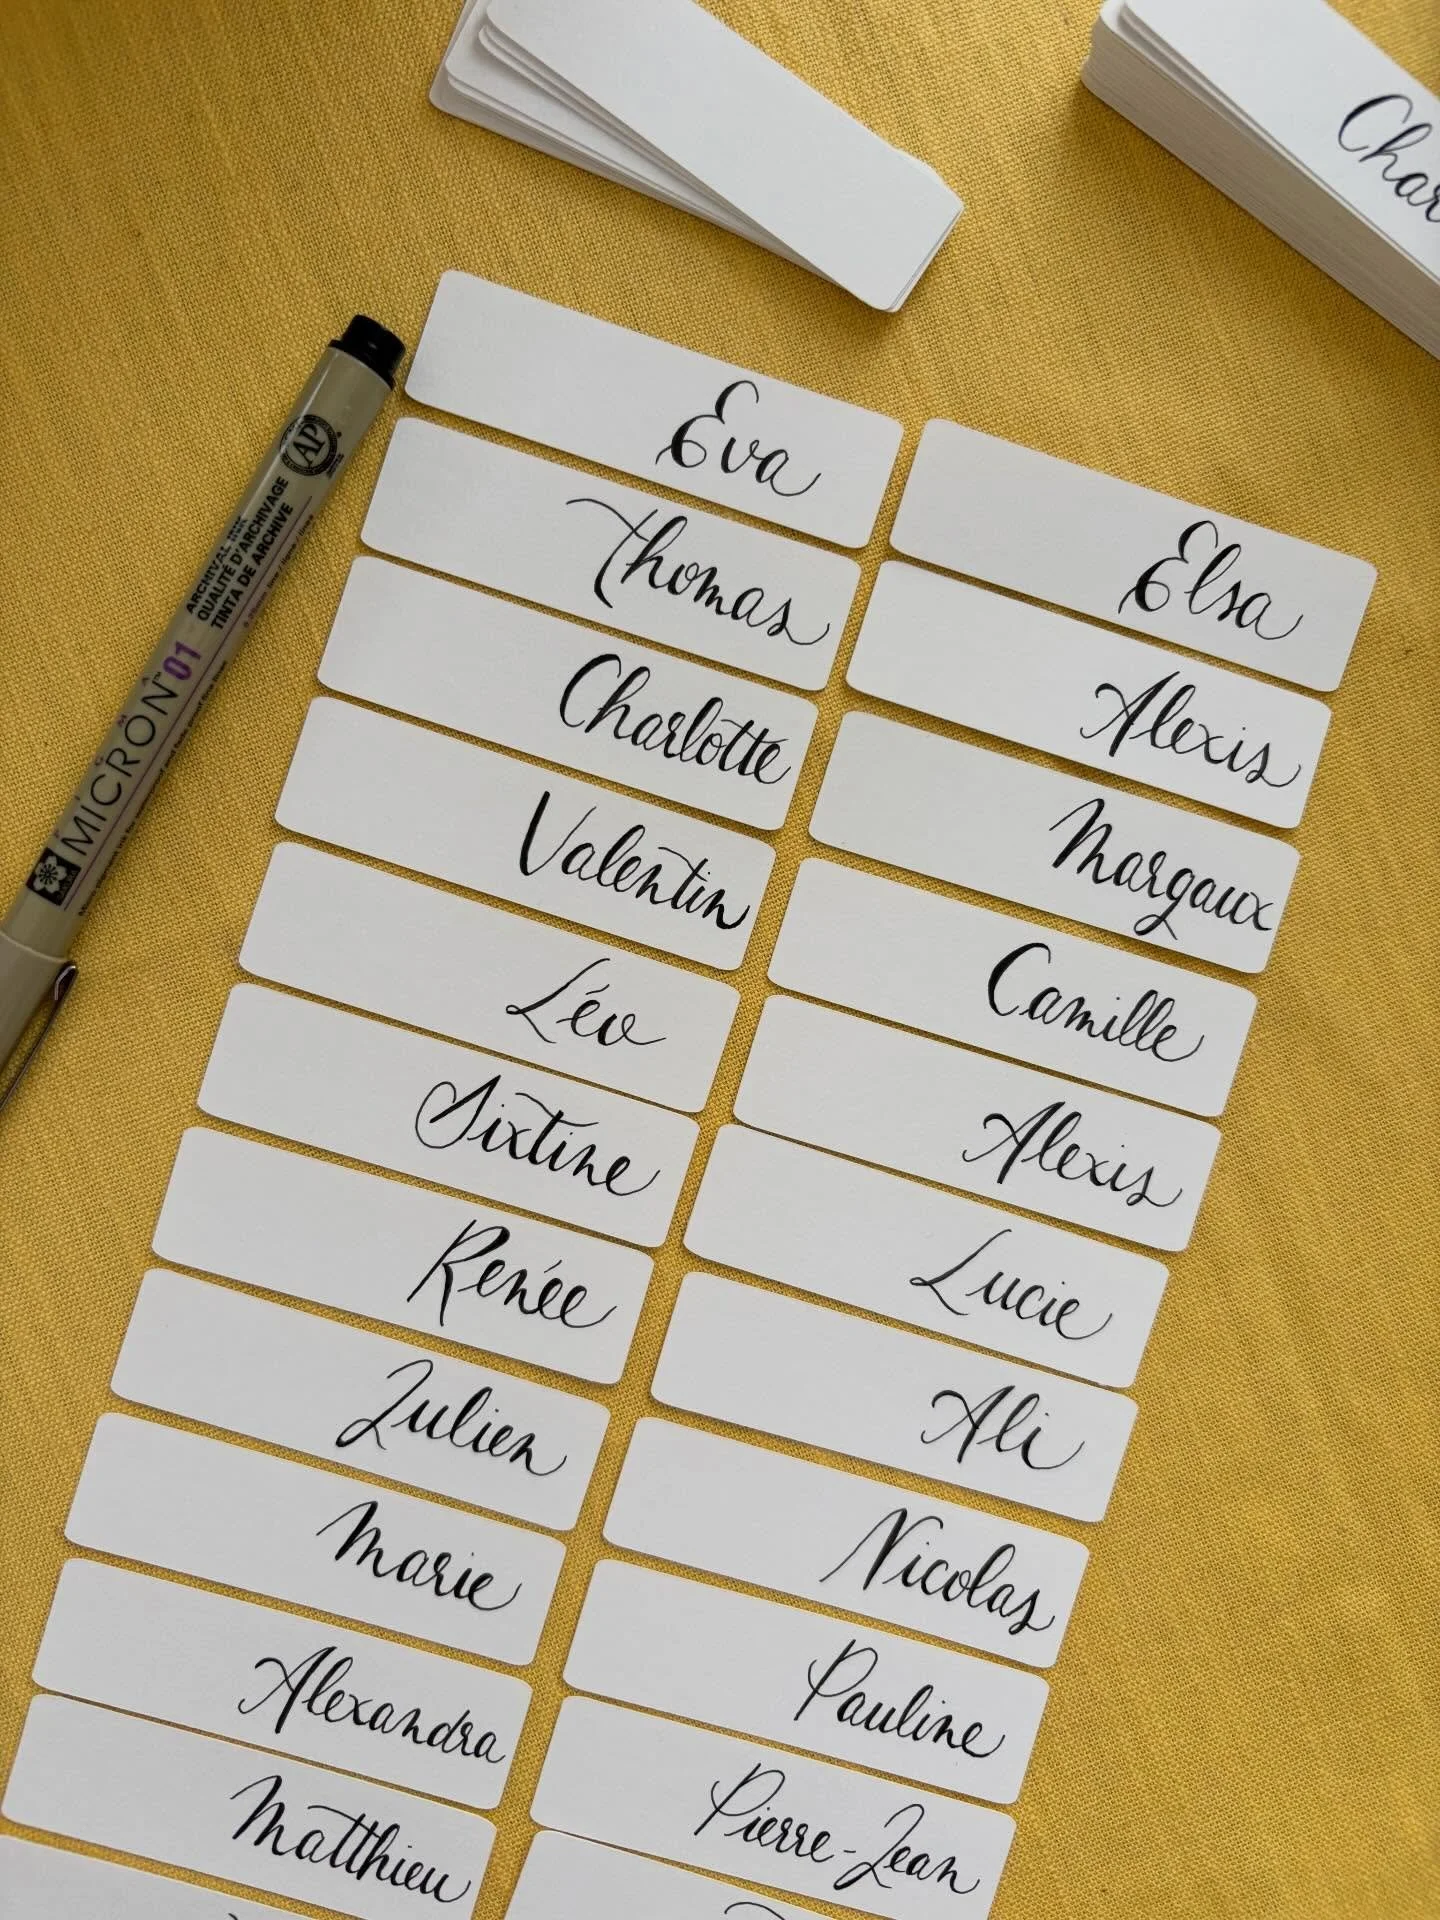 Char
Eva
Thomas
Charlotte
Valentin
Léo
Sixtine
Renée
Julien
Marie
Alexandra
Matthieu
Elsa
Alexis
Margaux
Camille
Alexis
Lucie
Ali
Nicolas
Pauline
Pierre-Jean
AP
ARCHIVAL INK
QUALITÉ D'ARCHIVAGE
TINTA DE ARCHIVE
PIGMA
MICRON™ 01